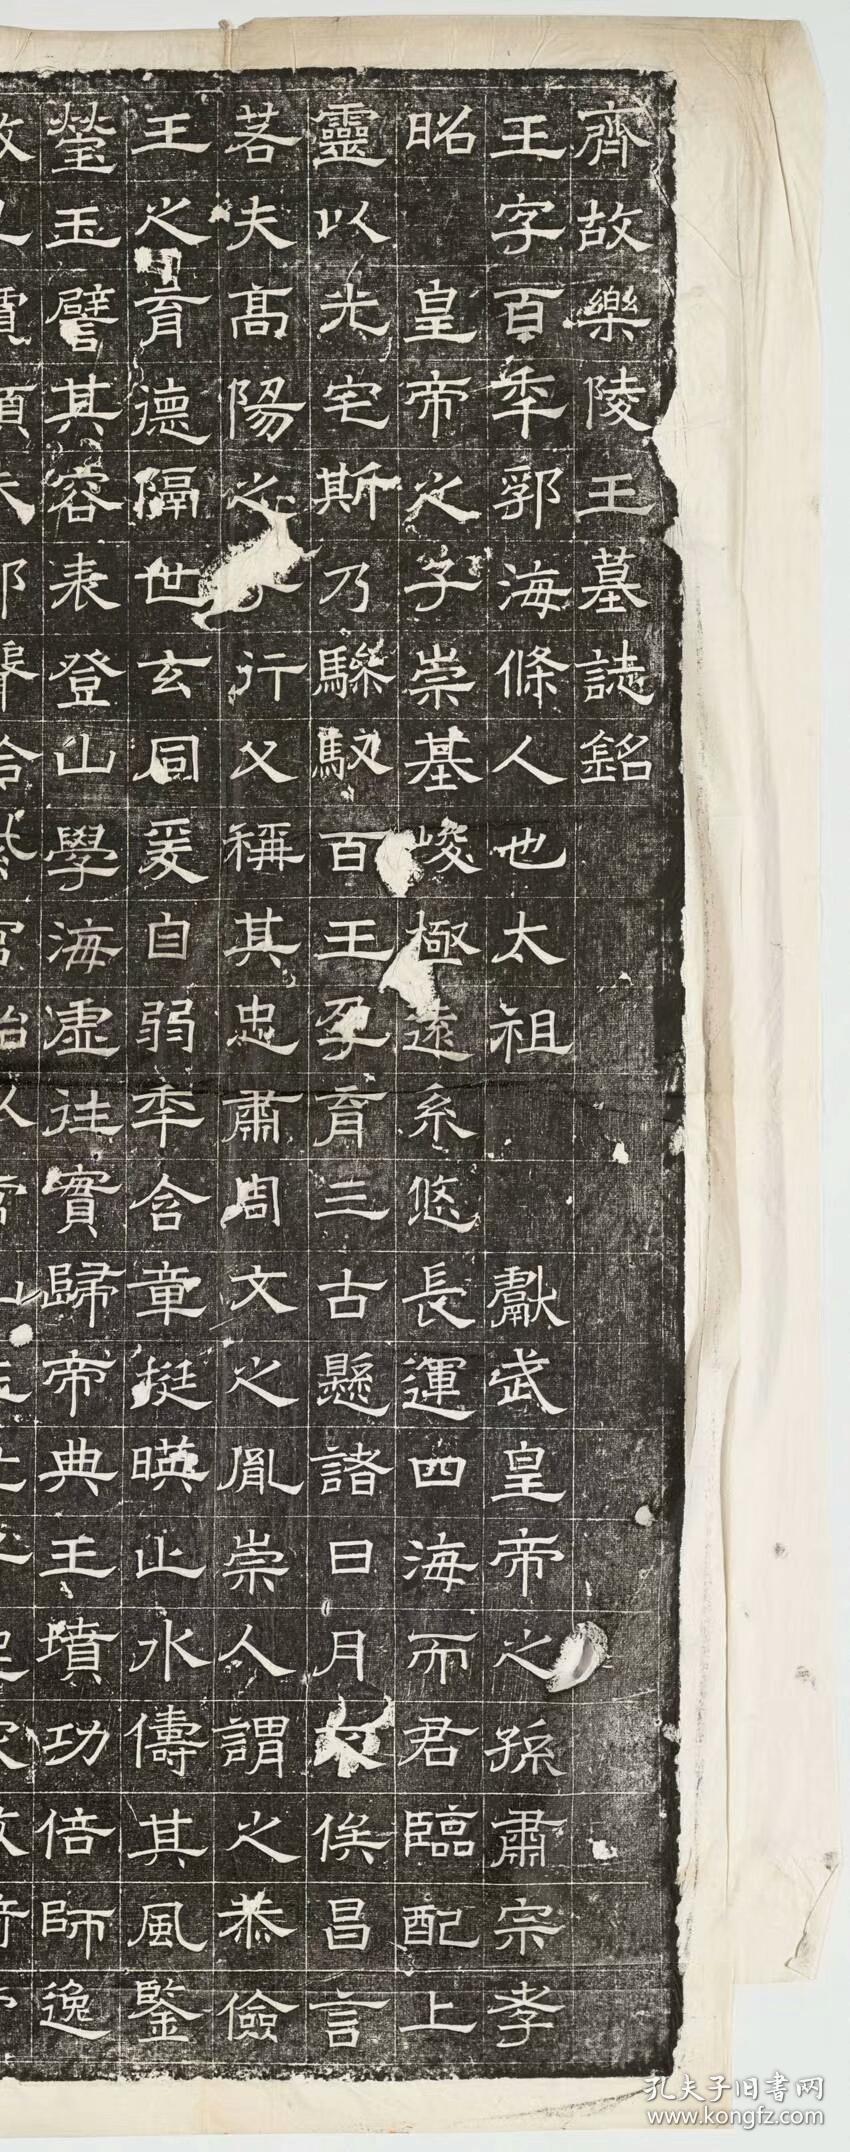 齊故樂陵王墓誌銘
王字百秊郭海條人也太祖獻武皇帝之孫肅宗孝
昭皇帝之子崇基峻極遠系悠長運四海而君臨配上
靈以光宅斯乃驂馭百王孕育三古懸諸日月俟昌言
若夫高陽之子行父稱其忠肅周文之胤崇人謂之恭儉
王之育德隔世玄同爰自弱秊含章挺暎止水儔其風鑒
瑩玉譬其容表登山學海虛往實歸帝典王墳功倍師逸
孔夫子旧书网
www.kongfz.com